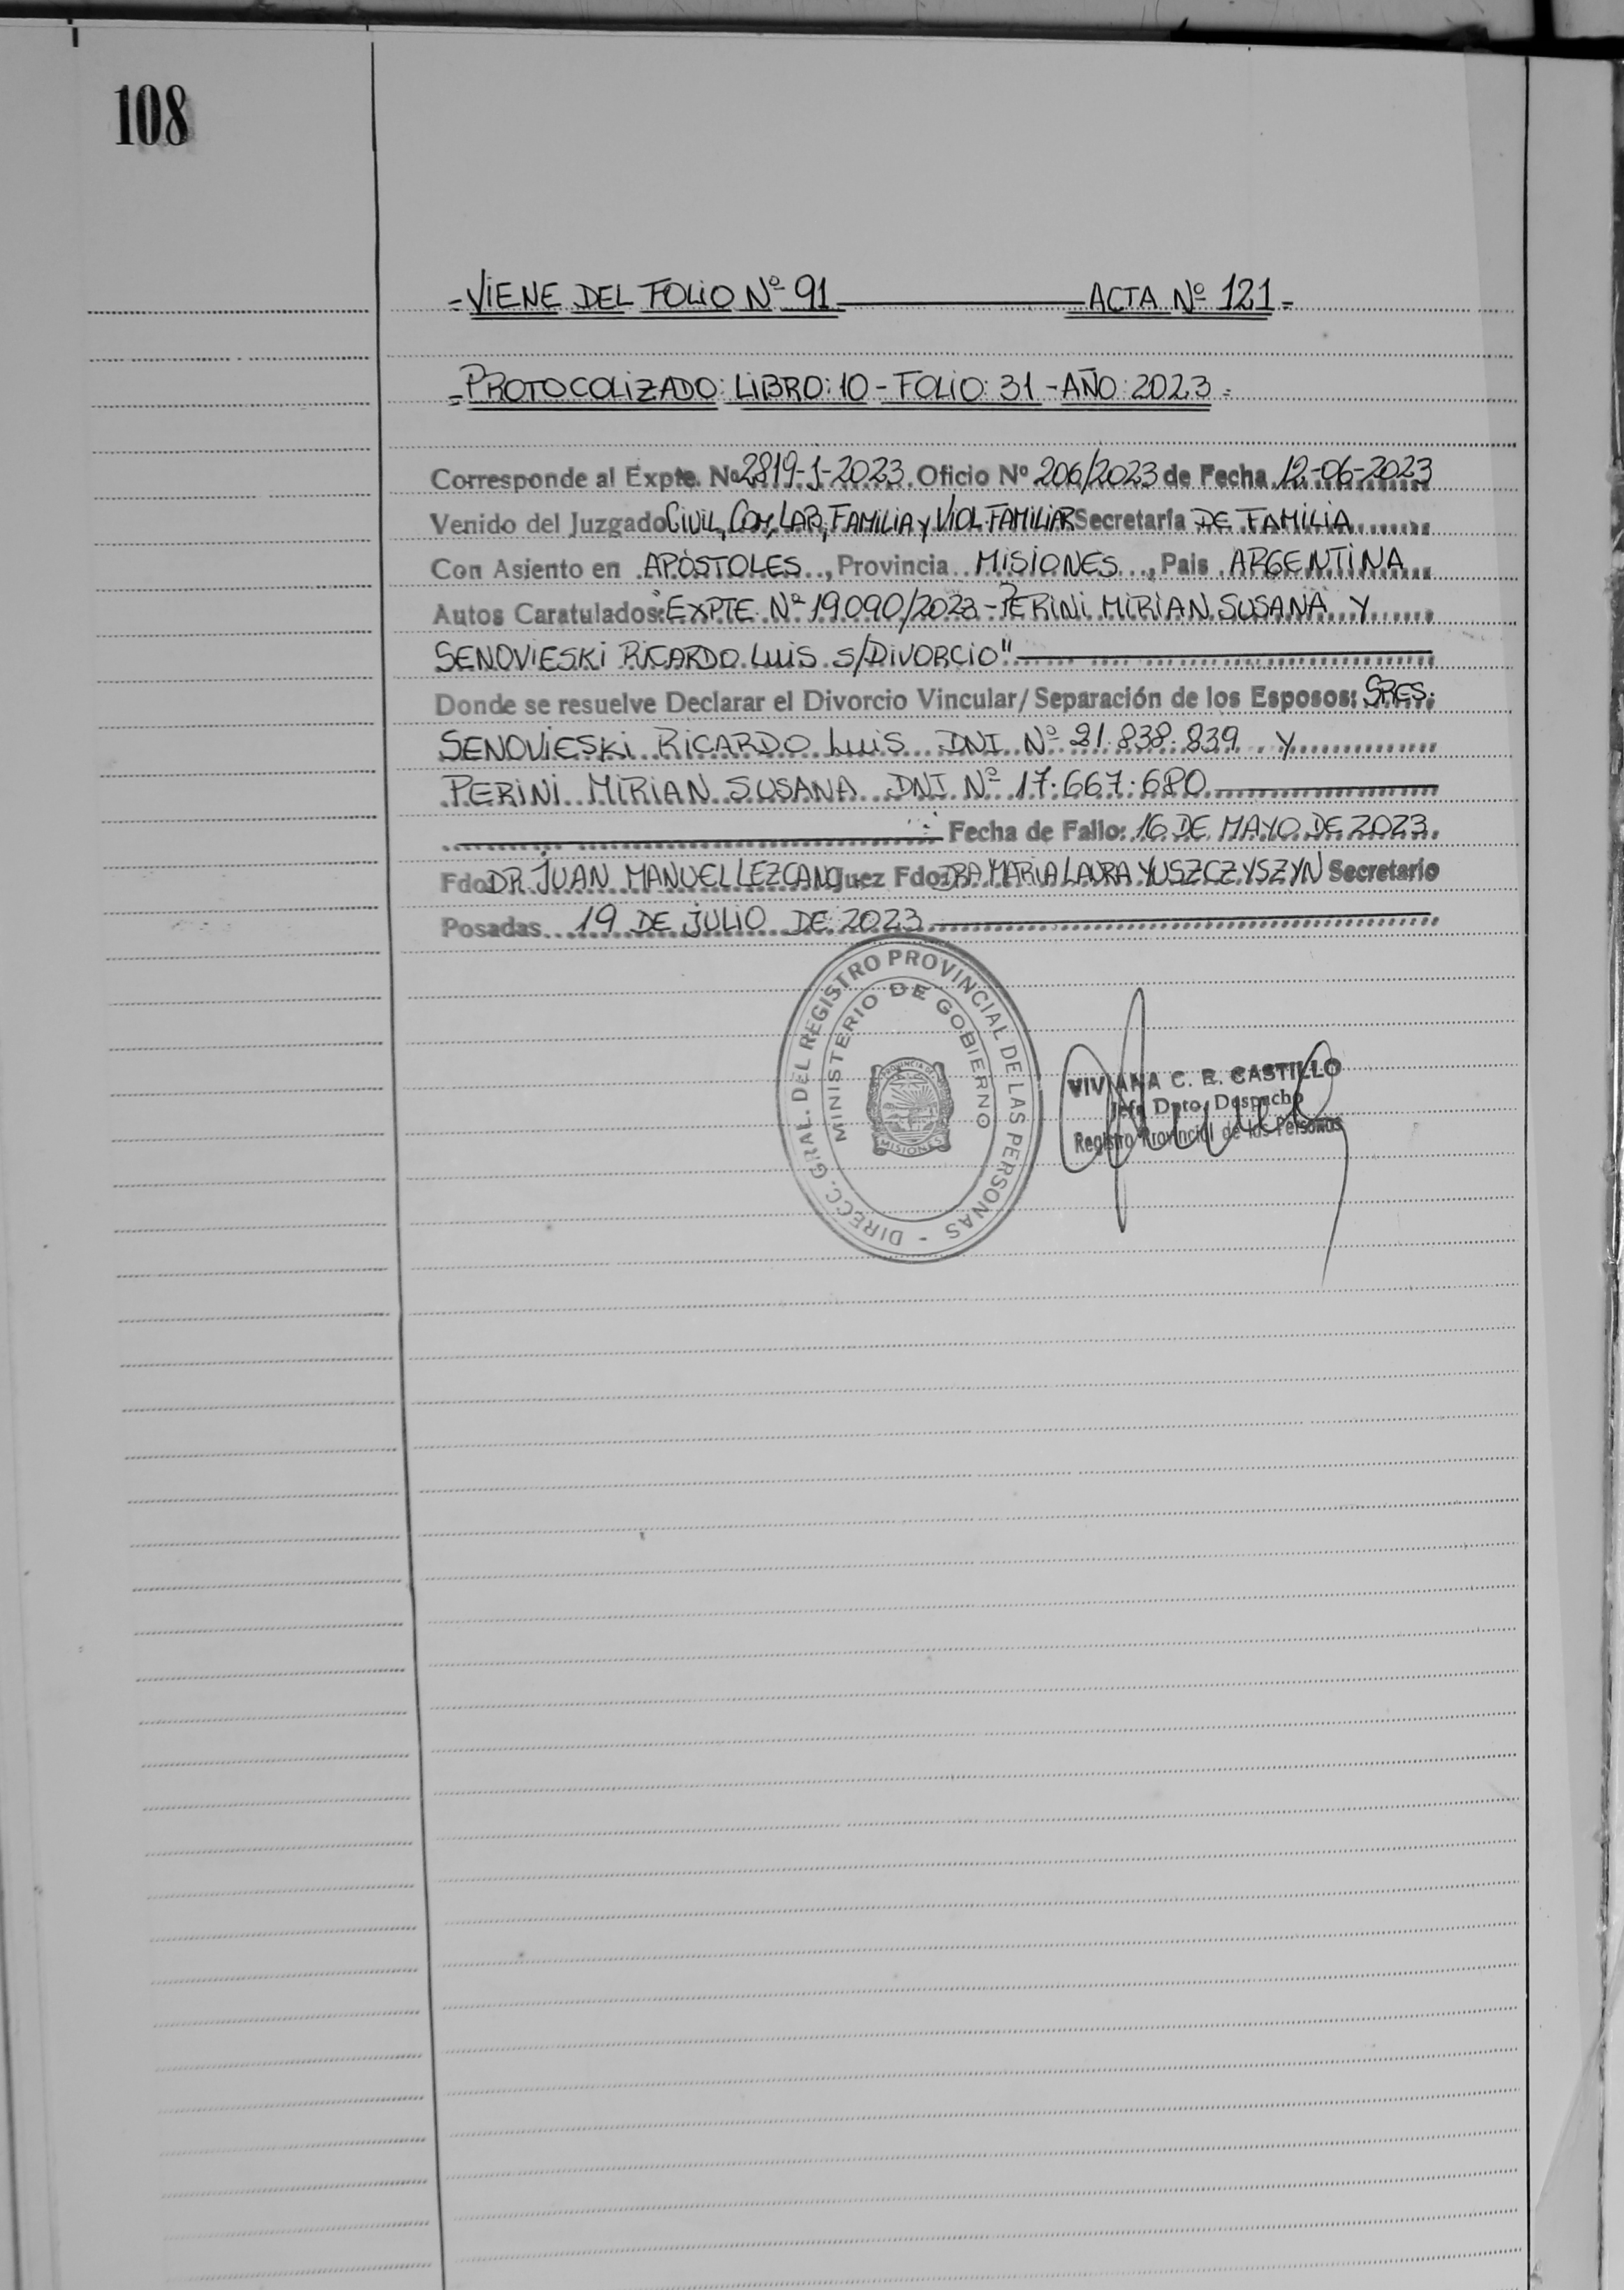 108
=VIENE DEL FOLIO Nº 91 ACTA Nº 121=
=PROTOCOLIZADO: LIBRO: 10 - FOLIO: 31 - AÑO: 2023=
Corresponde al Expte. Nº 2819-J-2023. Oficio Nº 206/2023 de Fecha 12-06-2023
Venido del Juzgado CIVIL, COM, LAB, FAMILIA y VIOL. FAMILIAR Secretaría DE FAMILIA
Con Asiento en APÓSTOLES, Provincia MISIONES, País ARGENTINA
Autos Caratulados: "EXPTE Nº 19090/2023 - PERINI MIRIAN SUSANA Y
SENOVIESKI RICARDO LUIS S/DIVORCIO"
Donde se resuelve Declarar el Divorcio Vincular/Separación de los Esposos: SRES.
SENOVIESKI RICARDO LUIS DNI Nº 21.838.839 Y
PERINI MIRIAN SUSANA DNI Nº 17.667.680
Fecha de Fallo: 16 DE MAYO DE 2023.
Fdo DR. JUAN MANUEL LEZCANO Juez Fdo: DRA MARIA LAURA YUSZCZYSZYN Secretario
Posadas 19 DE JULIO DE 2023
DIRECC. GRAL. DEL REGISTRO PROVINCIAL DE LAS PERSONAS -
MINISTERIO DE GOBIERNO
PROVINCIA DE
MISIONES
VIVIANA C. E. CASTILLO
Jefa Dpto. Despacho
Registro Provincial de las Personas